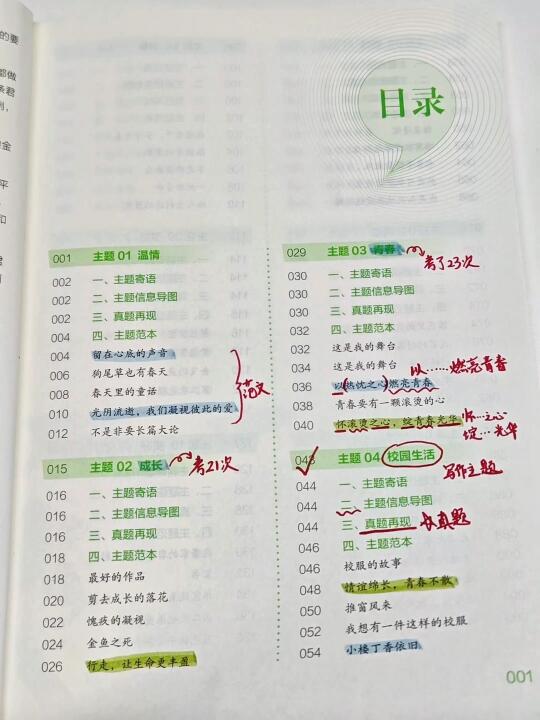 的要
都做
条君
例,
金
平
和
目录
001 主题 01 温情
002 一、主题寄语
002 二、主题信息导图
002 三、真题再现
004 四、主题范本
004 留在心底的声音
006 狗尾草也有春天
008 春天里的童话
010 光阴流逝，我们凝视彼此的爱
012 不是非要长篇大论
范文
015 主题 02 成长
考21次
016 一、主题寄语
016 二、主题信息导图
016 三、真题再现
018 四、主题范本
018 最好的作品
020 剪去成长的落花
022 愧疚的凝视
024 金鱼之死
026 行走，让生命更丰盈
029 主题 03 青春
考了23次
030 一、主题寄语
030 二、主题信息导图
030 三、真题再现
032 四、主题范本
032 这是我的舞台
034 这是我的舞台
以……燃亮青春
036 以热忱之心燃亮青春
038 青春要有一颗滚烫的心
040 怀滚烫之心，绽青春光华
怀…之心
绽…光华
043 主题 04 校园生活
写作主题
044 一、主题寄语
044 二、主题信息导图
044 三、真题再现
真题
046 四、主题范本
046 校服的故事
048 情谊绵长，青春不散
050 推窗风来
052 我想有一件这样的校服
054 小楼丁香依旧
001